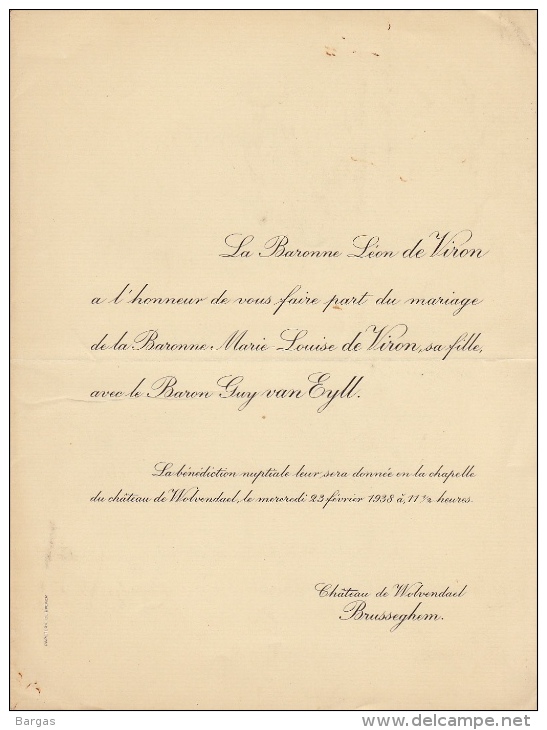 La Baronne Léon de Viron
a l'honneur de vous faire part du mariage
de la Baronne Marie Louise de Viron, sa fille,
avec le Baron Guy van Eyll.
La bénédiction nuptiale leur sera donnée en la chapelle
du château de Wolvendael, le mercredi 23 février 1938 à 11 ½ heures.
Château de Wolvendael
Brusseghem.
Bargas
© delcampe.net